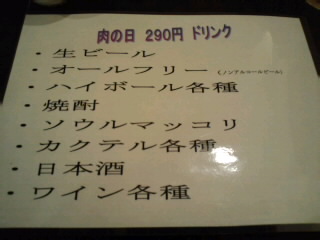 肉の日 290円 ドリンク
・生ビール
・オールフリー (ノンアルコールビール)
・ハイボール各種
・焼酎
・ソウルマッコリ
・カクテル各種
・日本酒
・ワイン各種